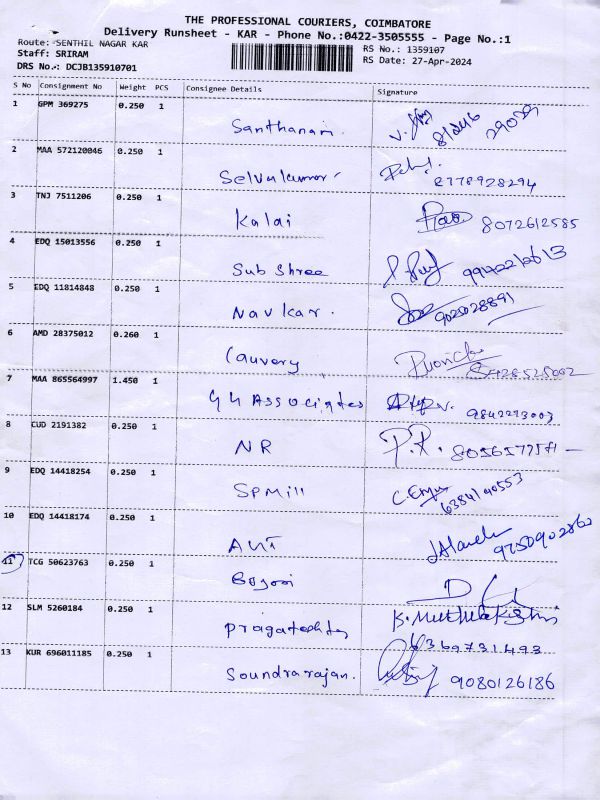 THE PROFESSIONAL COURIERS, COIMBATORE
Delivery Runsheet - KAR - Phone No.:0422-3505555 - Page No.:1
Route: SENTHIL NAGAR KAR
RS No.: 1359107
Staff: SRIRAM
RS Date: 27-Apr-2024
DRS No.: DCJB135910701
S No Consignment No Weight PCS Consignee Details Signature
1 GPM 369275 0.250 1 Santhanam.
2 MAA 572120046 0.250 1 Selvakumar 8778928294
3 TNJ 7511206 0.250 1 Kalai 8072612585
4 EDQ 15013556 0.250 1 Sub Shree
5 EDQ 11814848 0.250 1 Navkar. 902028891
6 AMD 28375012 0.260 1 Cauvery
7 MAA 865564997 1.450 1 Associates 9842293003
8 CUD 2191382 0.250 1 NR P.R.
9 EDQ 14418254 0.250 1 SPMill
10 EDQ 14418174 0.250 1 9750902860
11 TCG 50623763 0.250 1
12 SLM 5260184 0.250 1 K. Muthulakshmi
6369731493
13 KUR 696011185 0.250 1 Soundrarajan. 9080126186